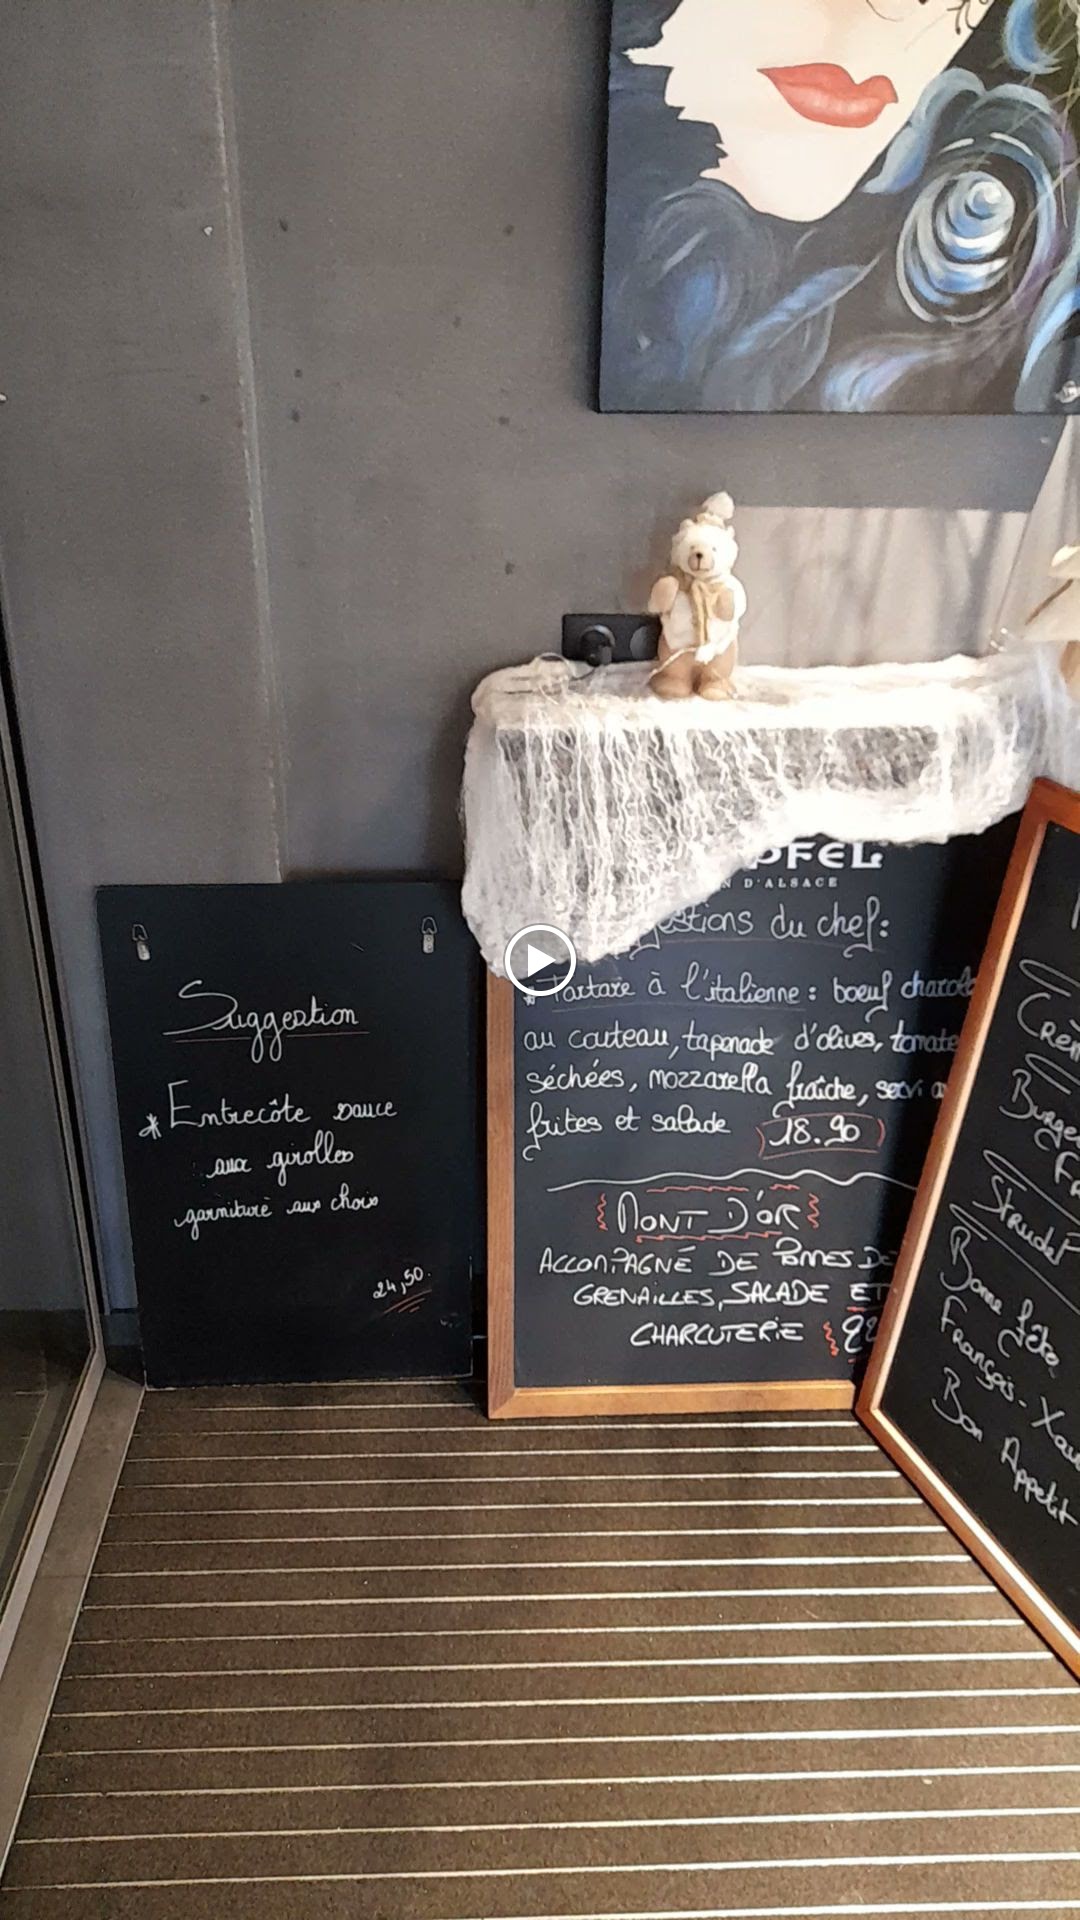 Suggestion
* Entrecôte sauce
aux girolles
garniture aux choix
24,50.
PFEL
D'ALSACE
du chef:
* Tartare à l'italienne : boeuf
au couteau, tapenade d'olives, tomate
séchées, mozzarella fraîche, servi
frites et salade 18.90
MONT D'OR
ACCOMPAGNÉ DE POMMES DE
GRENAILLES, SALADE ET
CHARCUTERIE
Strudel
Bonne fête
François-
Bon Appetit